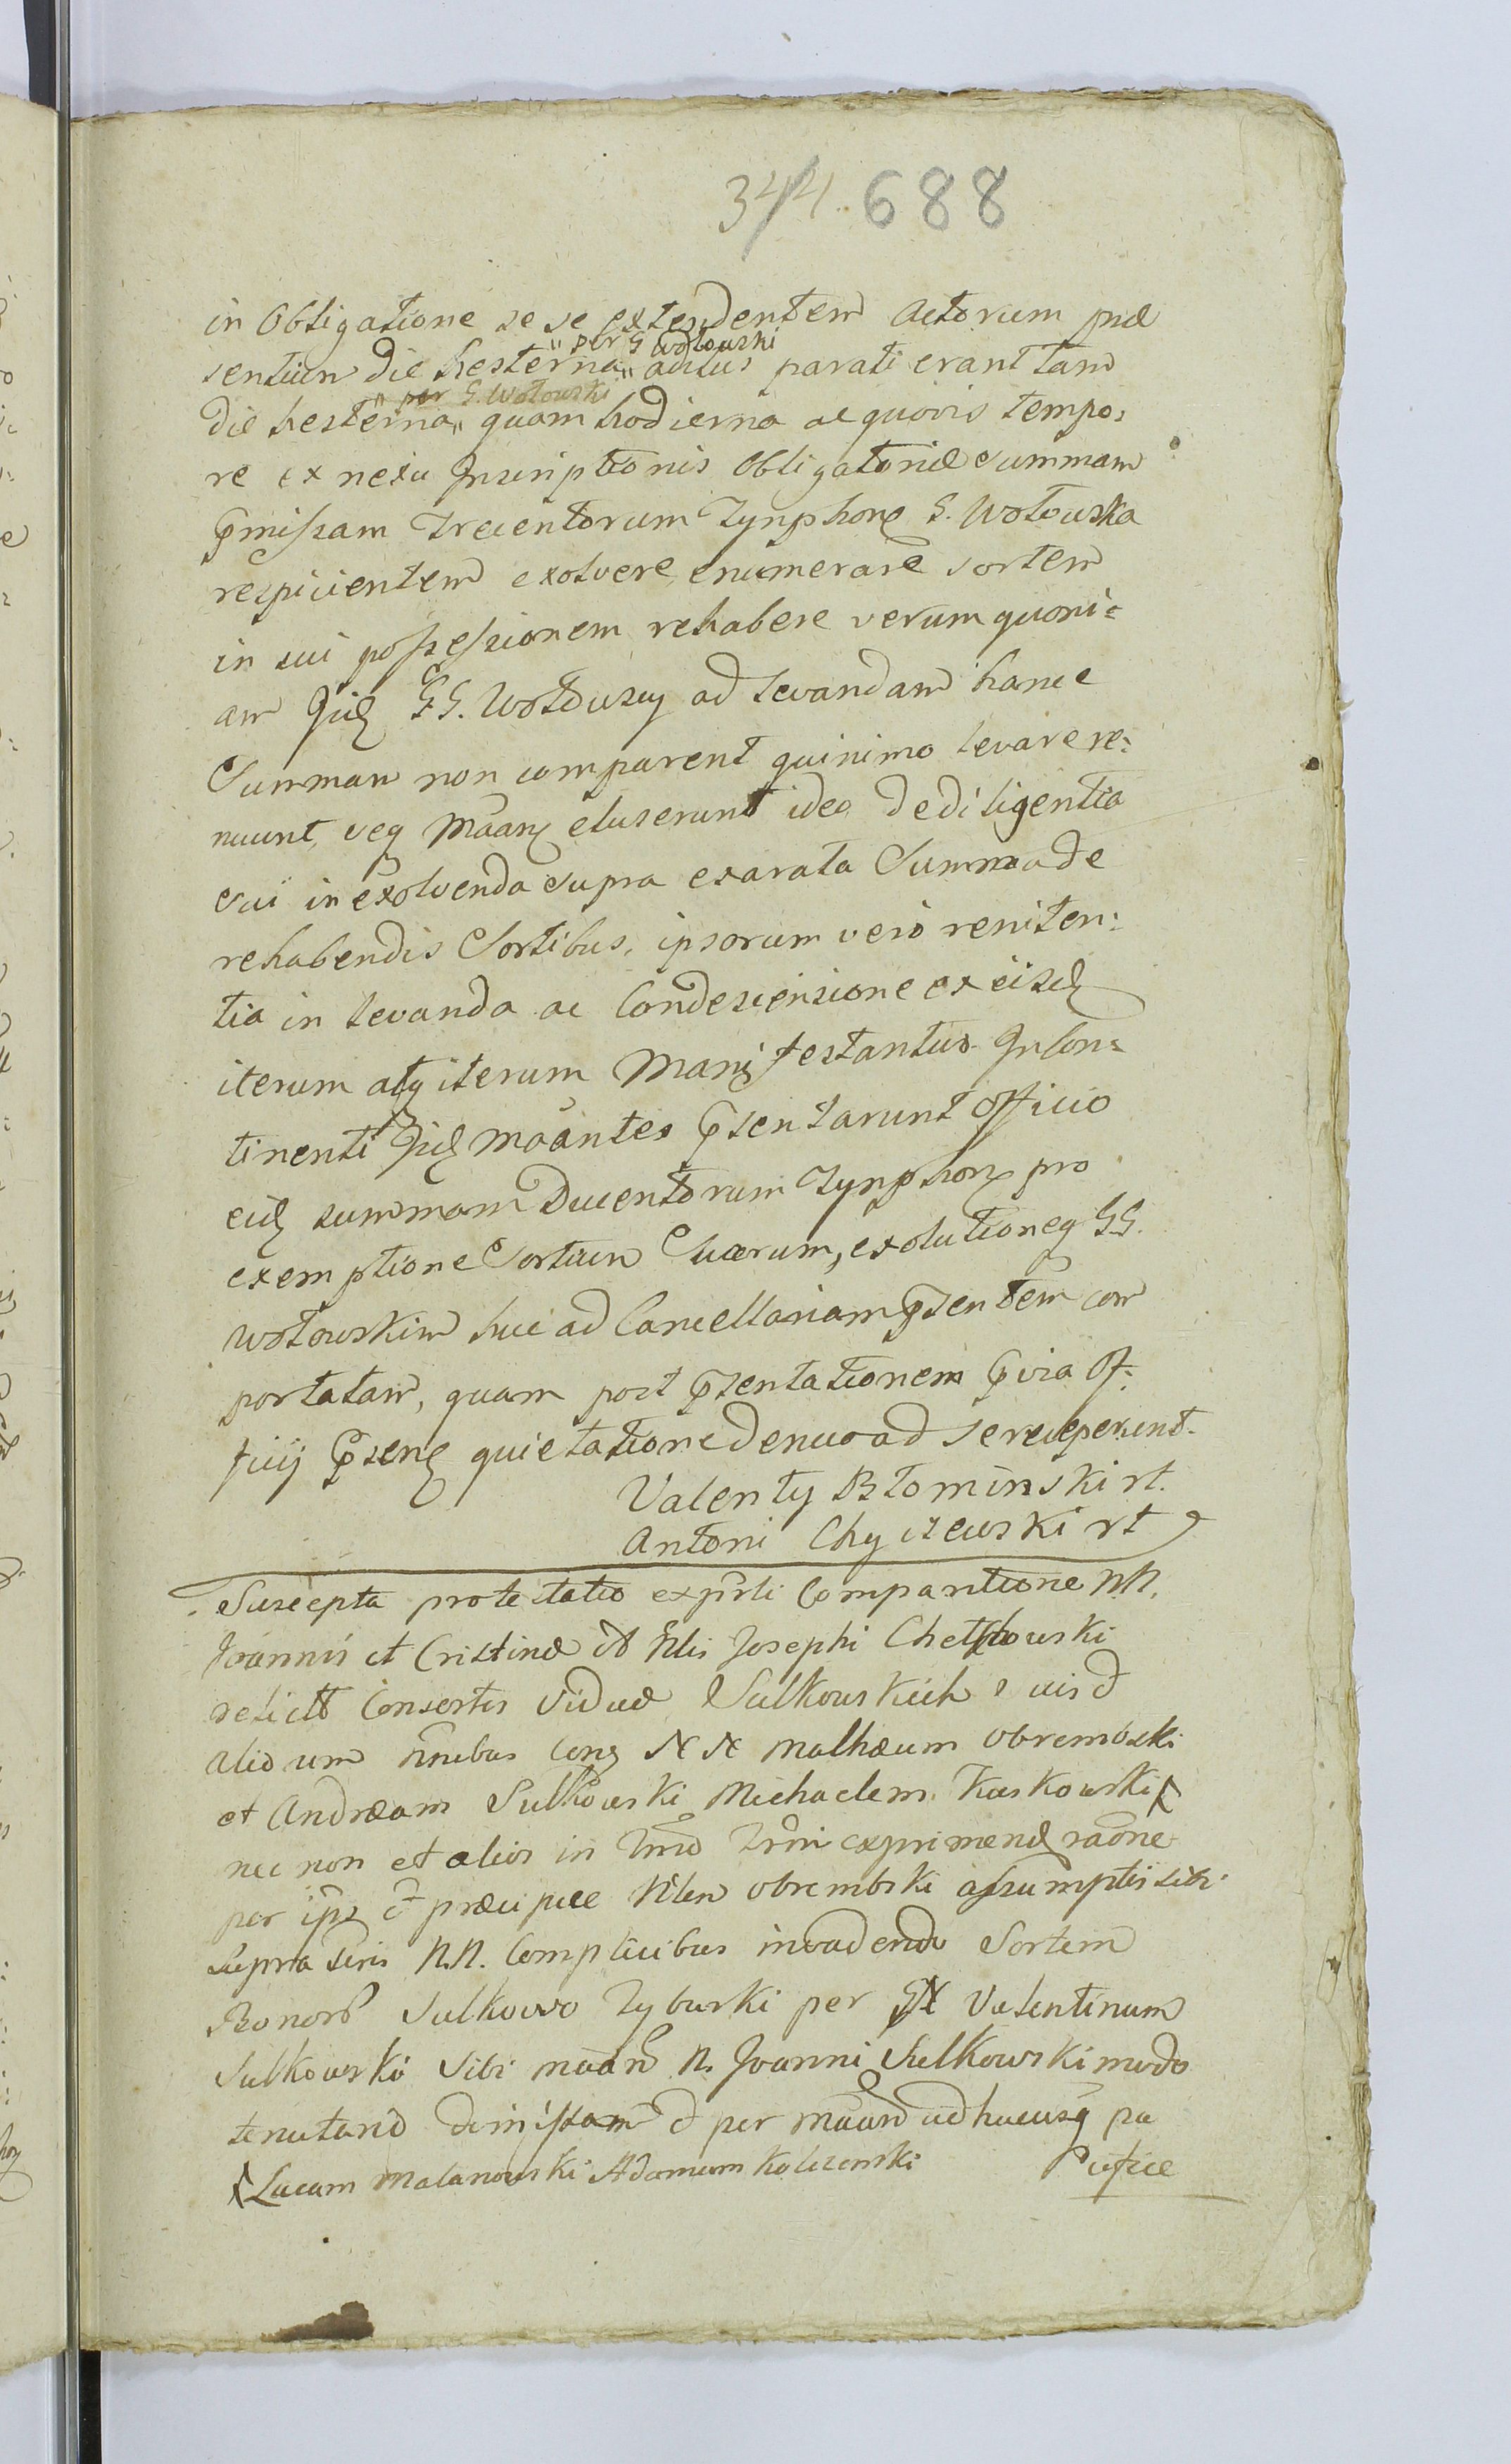 344. 688
in Obligatione se se extendentem Actorum præ
" per G Wołowski
sentium die hesterna " actus parati erant tam
" per G. Wołowski
die hesterna " quam hodierna ac quovis tempo:
re ex nexu Inscriptionis Obligatoriæ Summam
p̃missam Trecentorum Tynphorʒ G. Wołowska
respicientem exolvere enumerare sortem
in sui possessionem rehabere verum quoni=
am Iid GG. Wołowscy ad levandam hance
Summam non comparent quinimo levare re:
nuunt, veq Mãarʒ eluserunt ideo de diligentia
sui in exolvenda supra exarata Summa de
rehabendis Sortibus, ipsorum vero reniten:
tia in levanda ac Condescensione ex eisd
iterum atq iterum Manifestantur Incon=
tinenti Iid Mãantes p̃sentarunt Officio
eid summam Ducentorum Tynphorʒ pro
exemptione Sortium Suarum, exolutioneq GG.
Wołowskim huc ad Cancellariam p̃sentem com
portatam, quam post p̃sentationem p̃via Of:
ficij p̃sentʒ quietatione denuo ad se receperunt.
Valenty Błominski rt.
Antoni Chyczewski rt
Suscepta protestatio ex parti Comparitione NN.
Joannis et Cristinæ Nlis Josephi Chełstowski
relictæ Consortis Viduæ Sulkowskich
et Andræam Sulkowski Michaelem Kaskowski
nec non et alios in exprimend raõne
per ips et præcipue Nlem Obrembski assumptis sibi
supra N.N. Complicibus invadendo Sortem
Bonorʒ Sulkowo Tyburki per Valentinum
Sulkowski Sibi mãan N. Joanni Sulkowski modo
tenutario dimissam et per mãan adhucusq pa
Lucam Malanowski Adamum Kolczenski Pacifice